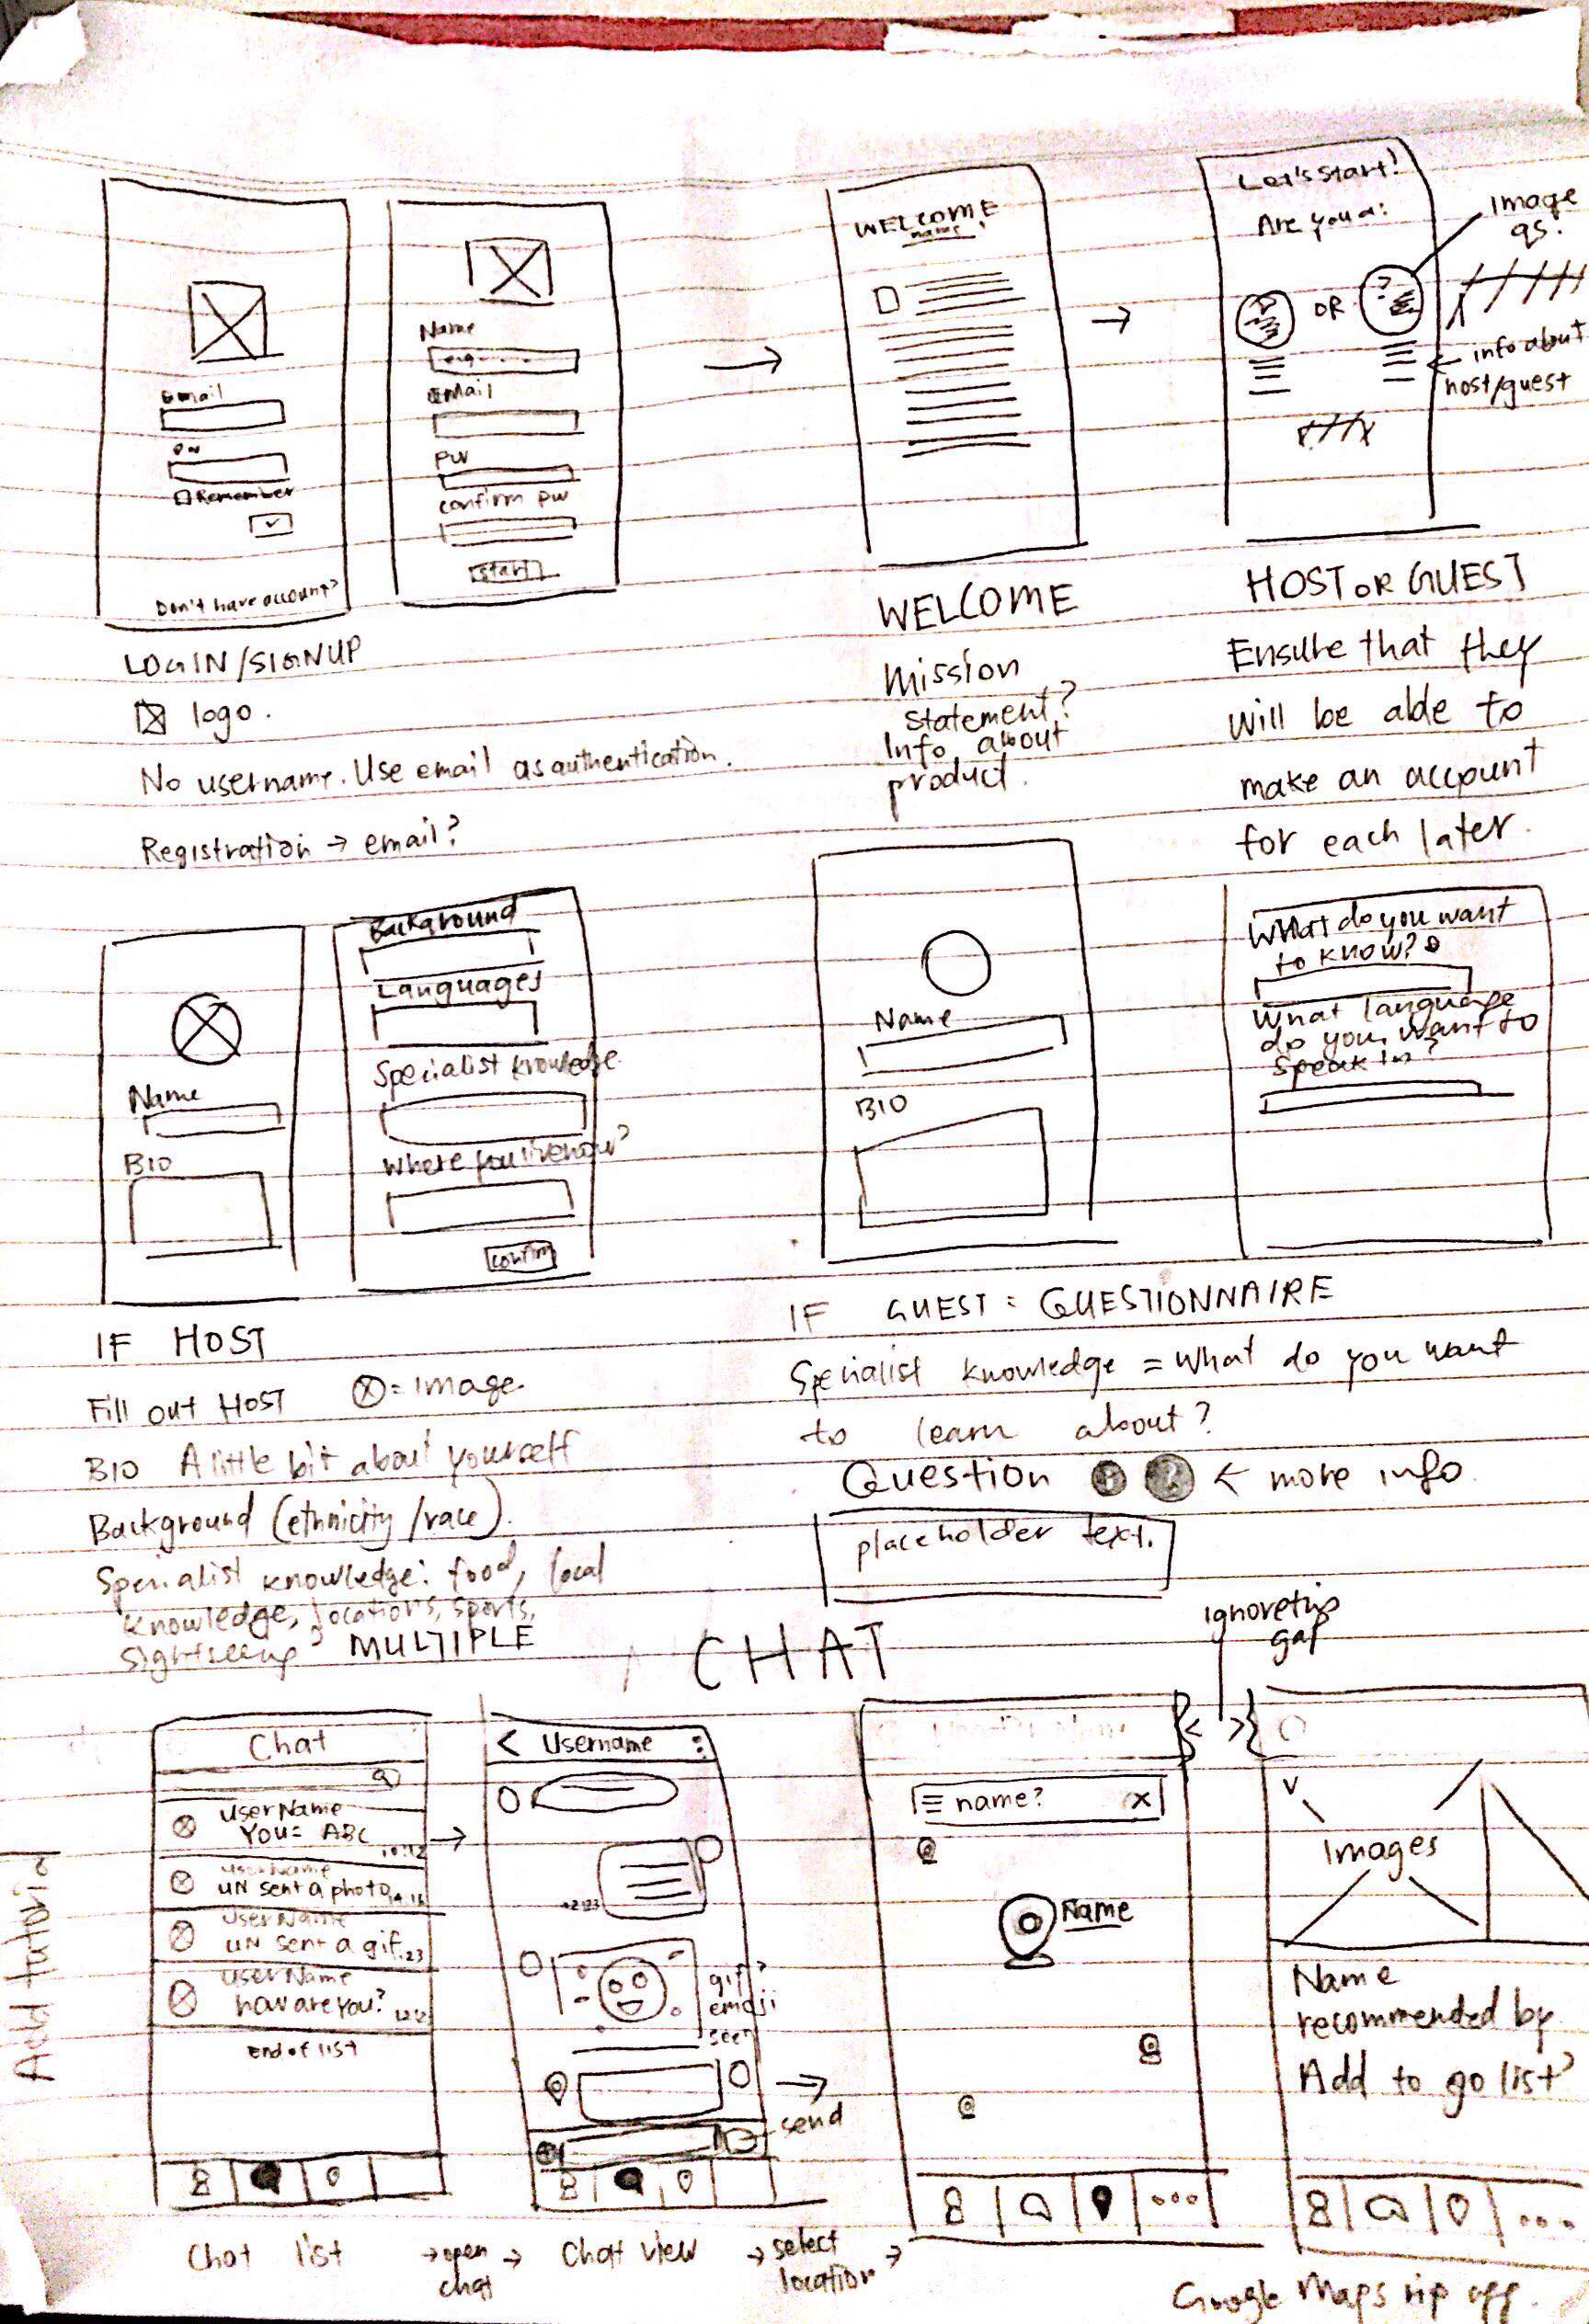 Email
PW
Remember
Don't have account?
Name
e.g. ....
EMail
PW
confirm pw
start
WELCOME
name!
Let's Start!
Are you a:
OR
?
Image
qs.
info about
host/guest
LOGIN/SIGNUP
logo.
No username. Use email as authentication.
Registration → email?
WELCOME
Mission
statement?
Info about
product.
HOST OR GUEST
Ensure that they
will be able to
make an account
for each later.
Name
BIO
Background
Languages
Specialist knowledge
Where you live now?
confirm
Name
BIO
What do you want
to know?
What language
do you want to
speak in?
IF HOST
Fill out HOST = Image
BIO A little bit about yourself
Background (ethnicity/race).
Specialist knowledge: food, local
knowledge, locations, sports,
sightseeing? MULTIPLE
IF GUEST = QUESTIONNAIRE
Specialist knowledge = What do you want
to learn about?
Question ← more info
placeholder text.
CHAT
ignore this
gap
Add tutorial
Chat
UserName
YOU= ABC
10:12
UserName
UN sent a photo
UserName
UN sent a gif
UserName
how are you?
End of list
< Username
gif?
emoji
seen
send
name? X
Name
Images
Name
recommended by
Add to go list?
Chat list → open chat → Chat view → select location →
Google Maps rip off.